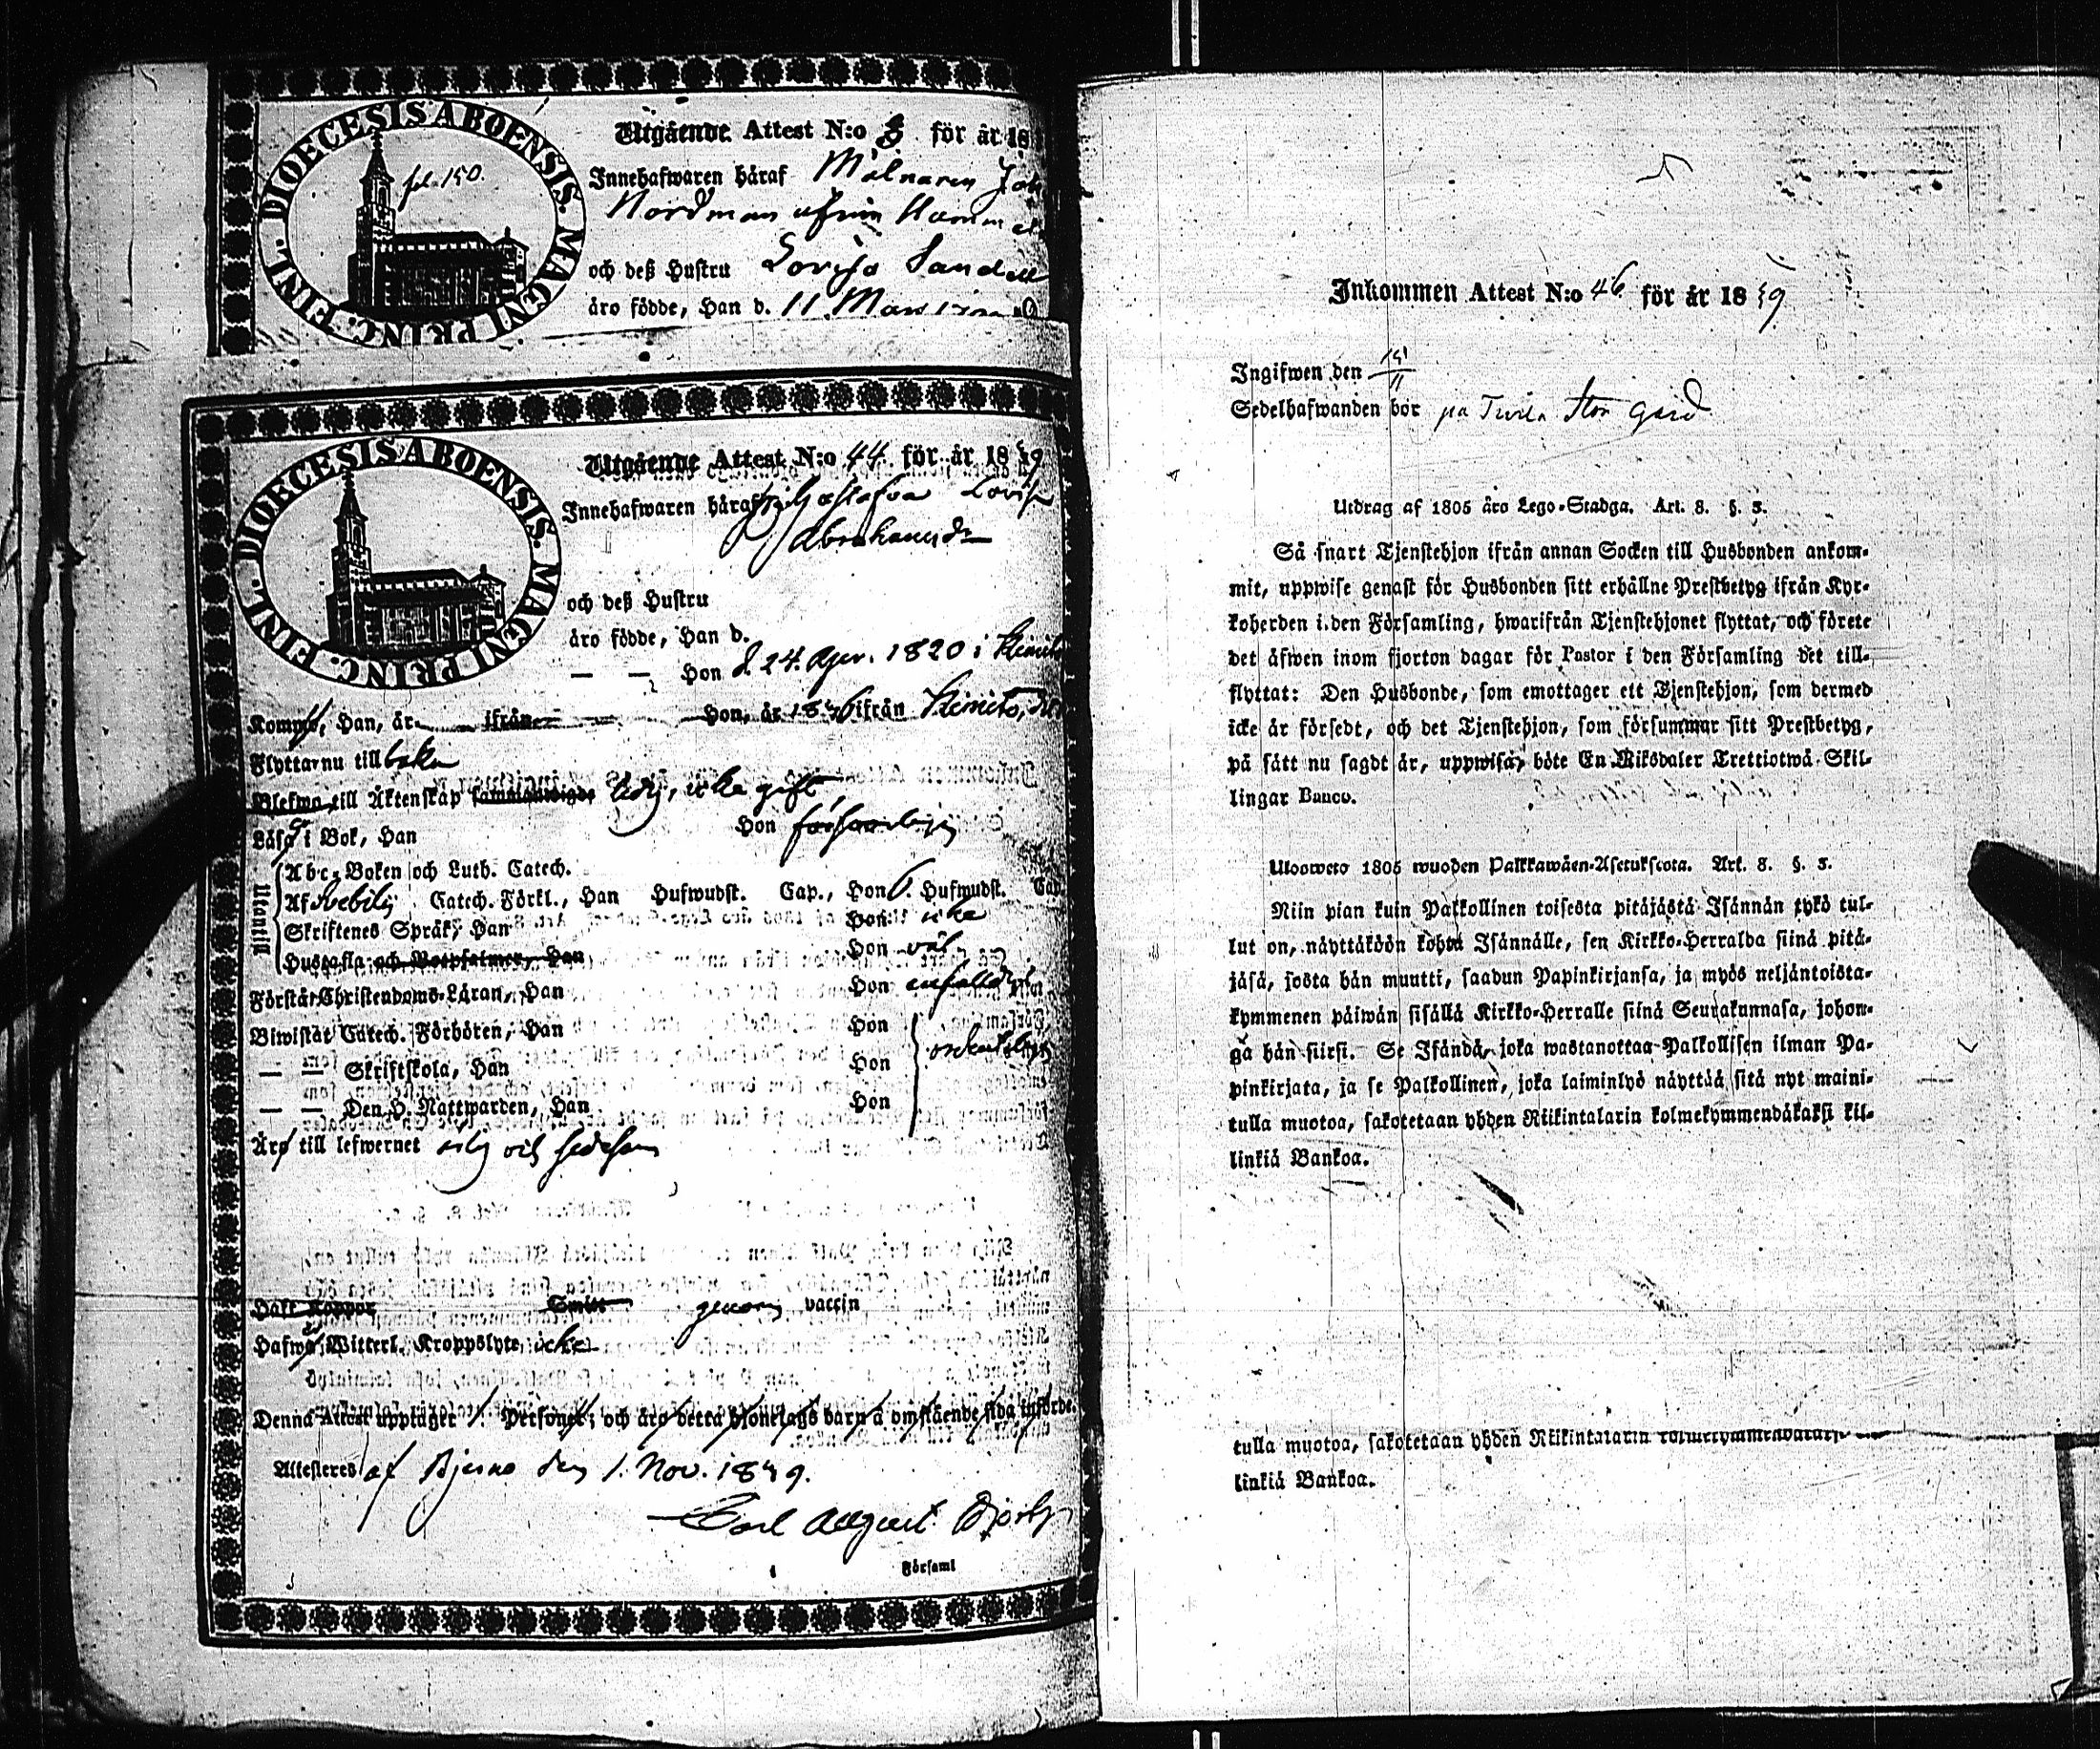 DIOECESIS ABOENSIS. MAGNI PRINC. FINL.
fol. 150.
Utgående Attest N:o 3 för år 18
Innehafwaren håraf Mölnaren Joh
Nordman ifrån
och deß Hustru Lovisa Sandell
äro födde, Han d. 11 Mars
DIOECESIS ABOENSIS. MAGNI PRINC. FINL.
Utgående Attest N:o 44 för år 1849
Innehafwaren håraf Gustafva Lovisa
Abrahamsdr
och deß Hustru
äro födde, Han d.
— — Hon d. 24. 1820 i Kimito
Komne, Han, år ifrån Hon, år 1846 ifrån Kimito, dit
Flytta nu till baka
Blefwo till Äktenskap sammanwigde ledig, icke gift
Läsa i Bok, Han Hon försvarligen
Utantill
Abc-Boken och Luth. Catech.
Af Svebilij Catech. Förkl., Han Hufwudst. Cap., Hon 6. Hufwudst. Cap.
Skriftenes Språk, Han Hon icke
Hustafla och Botpsalmer, Han Hon väl
Förstår Christendoms-Läran, Han Hon enfalldigt
Biwistat Catech. Förhören, Han Hon
— — Skriftskola, Han Hon ordentligen
— — Den H. Nattwarden, Han Hon
Äro till lefwernet ärlig och sedesam
Haft Koppor Smitt genom vaccin
Hafwa Witterl. Kroppslyte icke
Denna Attest upptager 1. Personer; och äro detta hjonelags barn å omstående sida införde.
Attesteres af Bjerno den 1. Nov. 1849.
Carl August
Församl
Inkommen Attest N:o 46 för år 1849
Ingifwen den 15/11
Sedelhafwanden bor på Stor gård
Utdrag af 1805 års Lego-Stadga. Art. 8. §. 3.
Så snart Tjenstehjon ifrån annan Socken till Husbonden ankom-
mit, uppwise genast för Husbonden sitt erhållne Prestbetyg ifrån Kyr-
koherden i den Församling, hwarifrån Tjenstehjonet flyttat, och förete
det äfwen inom fjorton dagar för Pastor i den Församling det till-
flyttat: Den Husbonde, som emottager ett Tjenstehjon, som dermed
icke är försedt, och det Tjenstehjon, som försummar sitt Prestbetyg,
på sätt nu sagdt är, uppwisa, böte En Riksdaler Trettiotwå Skil-
lingar Banco.
Ulosweto 1805 wuoden Palkkawäen-Asetuksesta. Art. 8. §. 3.
Niin pian kuin Palkollinen toisesta pitäjästä Isännän tykö tul-
lut on, näyttäköön kohta Isännälle, sen Kirkko-Herralda siinä pitä-
jäsä, josta hän muutti, saadun Papinkirjansa, ja myös neljäntoista-
kymmenen päiwän sisällä Kirkko-Herralle siinä Seurakunnasa, johon-
ga hän siirsi. Se Isändä, joka wastanottaa Palkollisen ilman Pa-
pinkirjata, ja se Palkollinen, joka laiminlyö näyttää sitä nyt maini-
tulla muotoa, sakotetaan yhden Riikintalarin kolmekymmendäkaksi kil-
linkiä Bankoa.
tulla muotoa, sakotetaan yhden Riikintalarin kolmekymmendäkaksi
linkiä Bankoa.